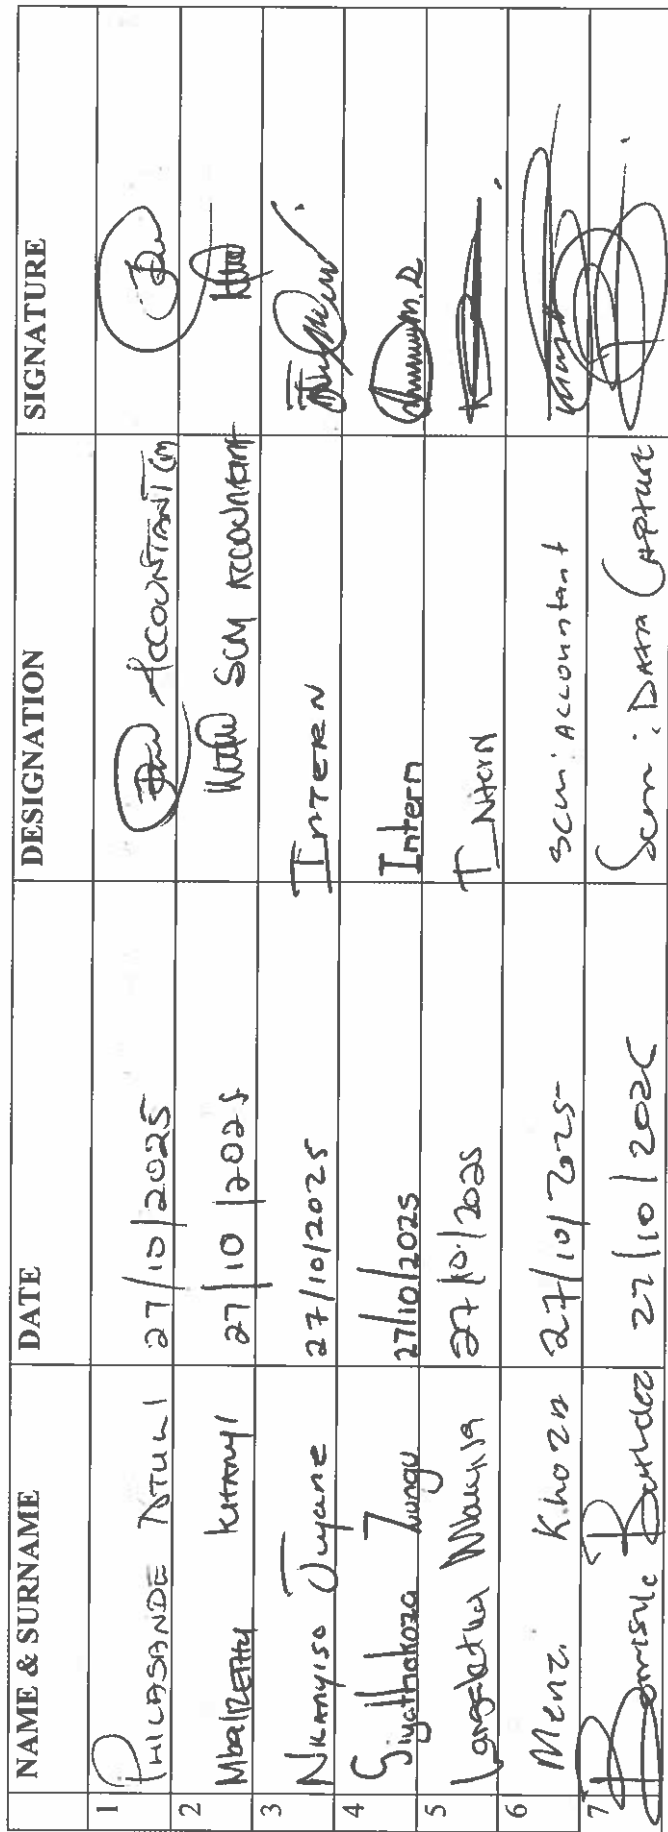 NAME & SURNAME DATE DESIGNATION SIGNATURE
1 PHILASANDE NTULI 27/10/2025 ACCOUNTANT
2 KHANYI 27/10/2025 SCM ACCOUNTANT
3 NKANYISO Juyane 27/10/2025 INTERN
4 Siyathokoza Zungu 27/10/2025 Intern
5 27/10/2025 Intern
6 Menzi Khoza 27/10/2025 SCM: Accountant
7 27/10/2025 Scm: DATA CAPTURE